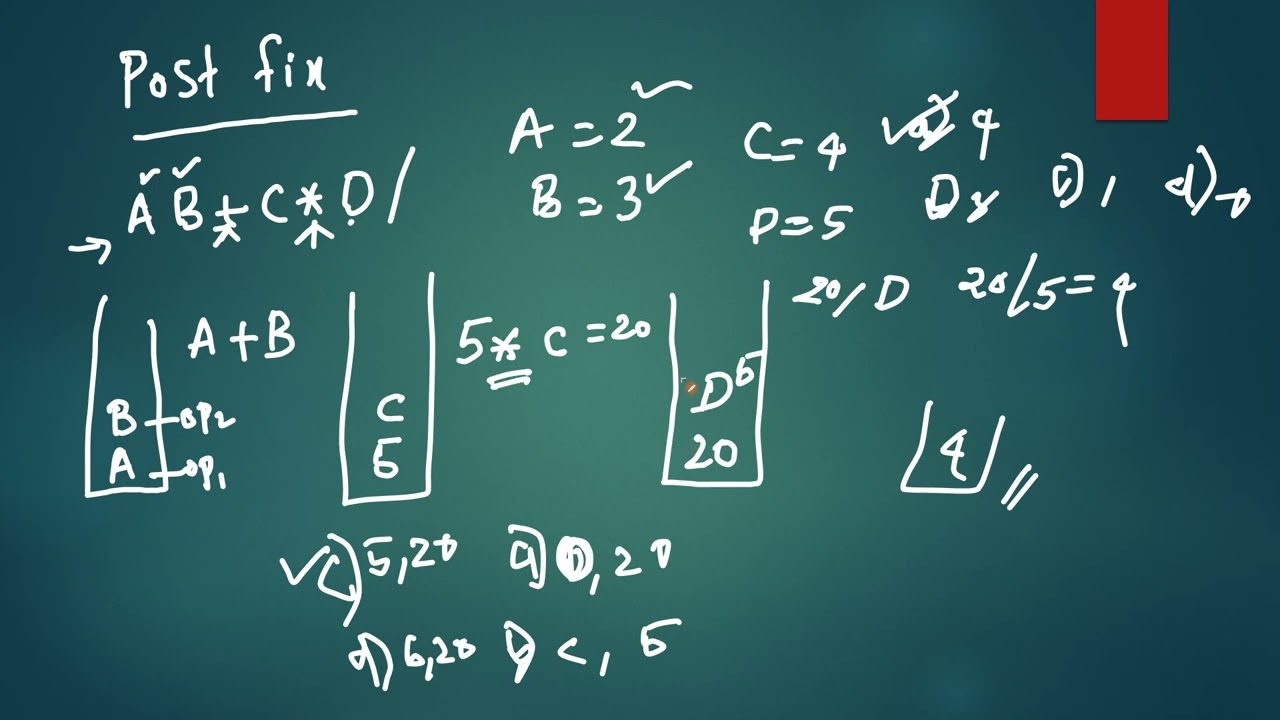 Post fix
A = 2
C = 4
4
B = 3
A B + C * D /
D = 5
20/D
20/5 = 4
A + B
5 * C = 20
B – OP2
A – OP1
C
5
D 5
20
4
c) 5, 20
a) 0, 20
d) 6, 20
b) C, 5